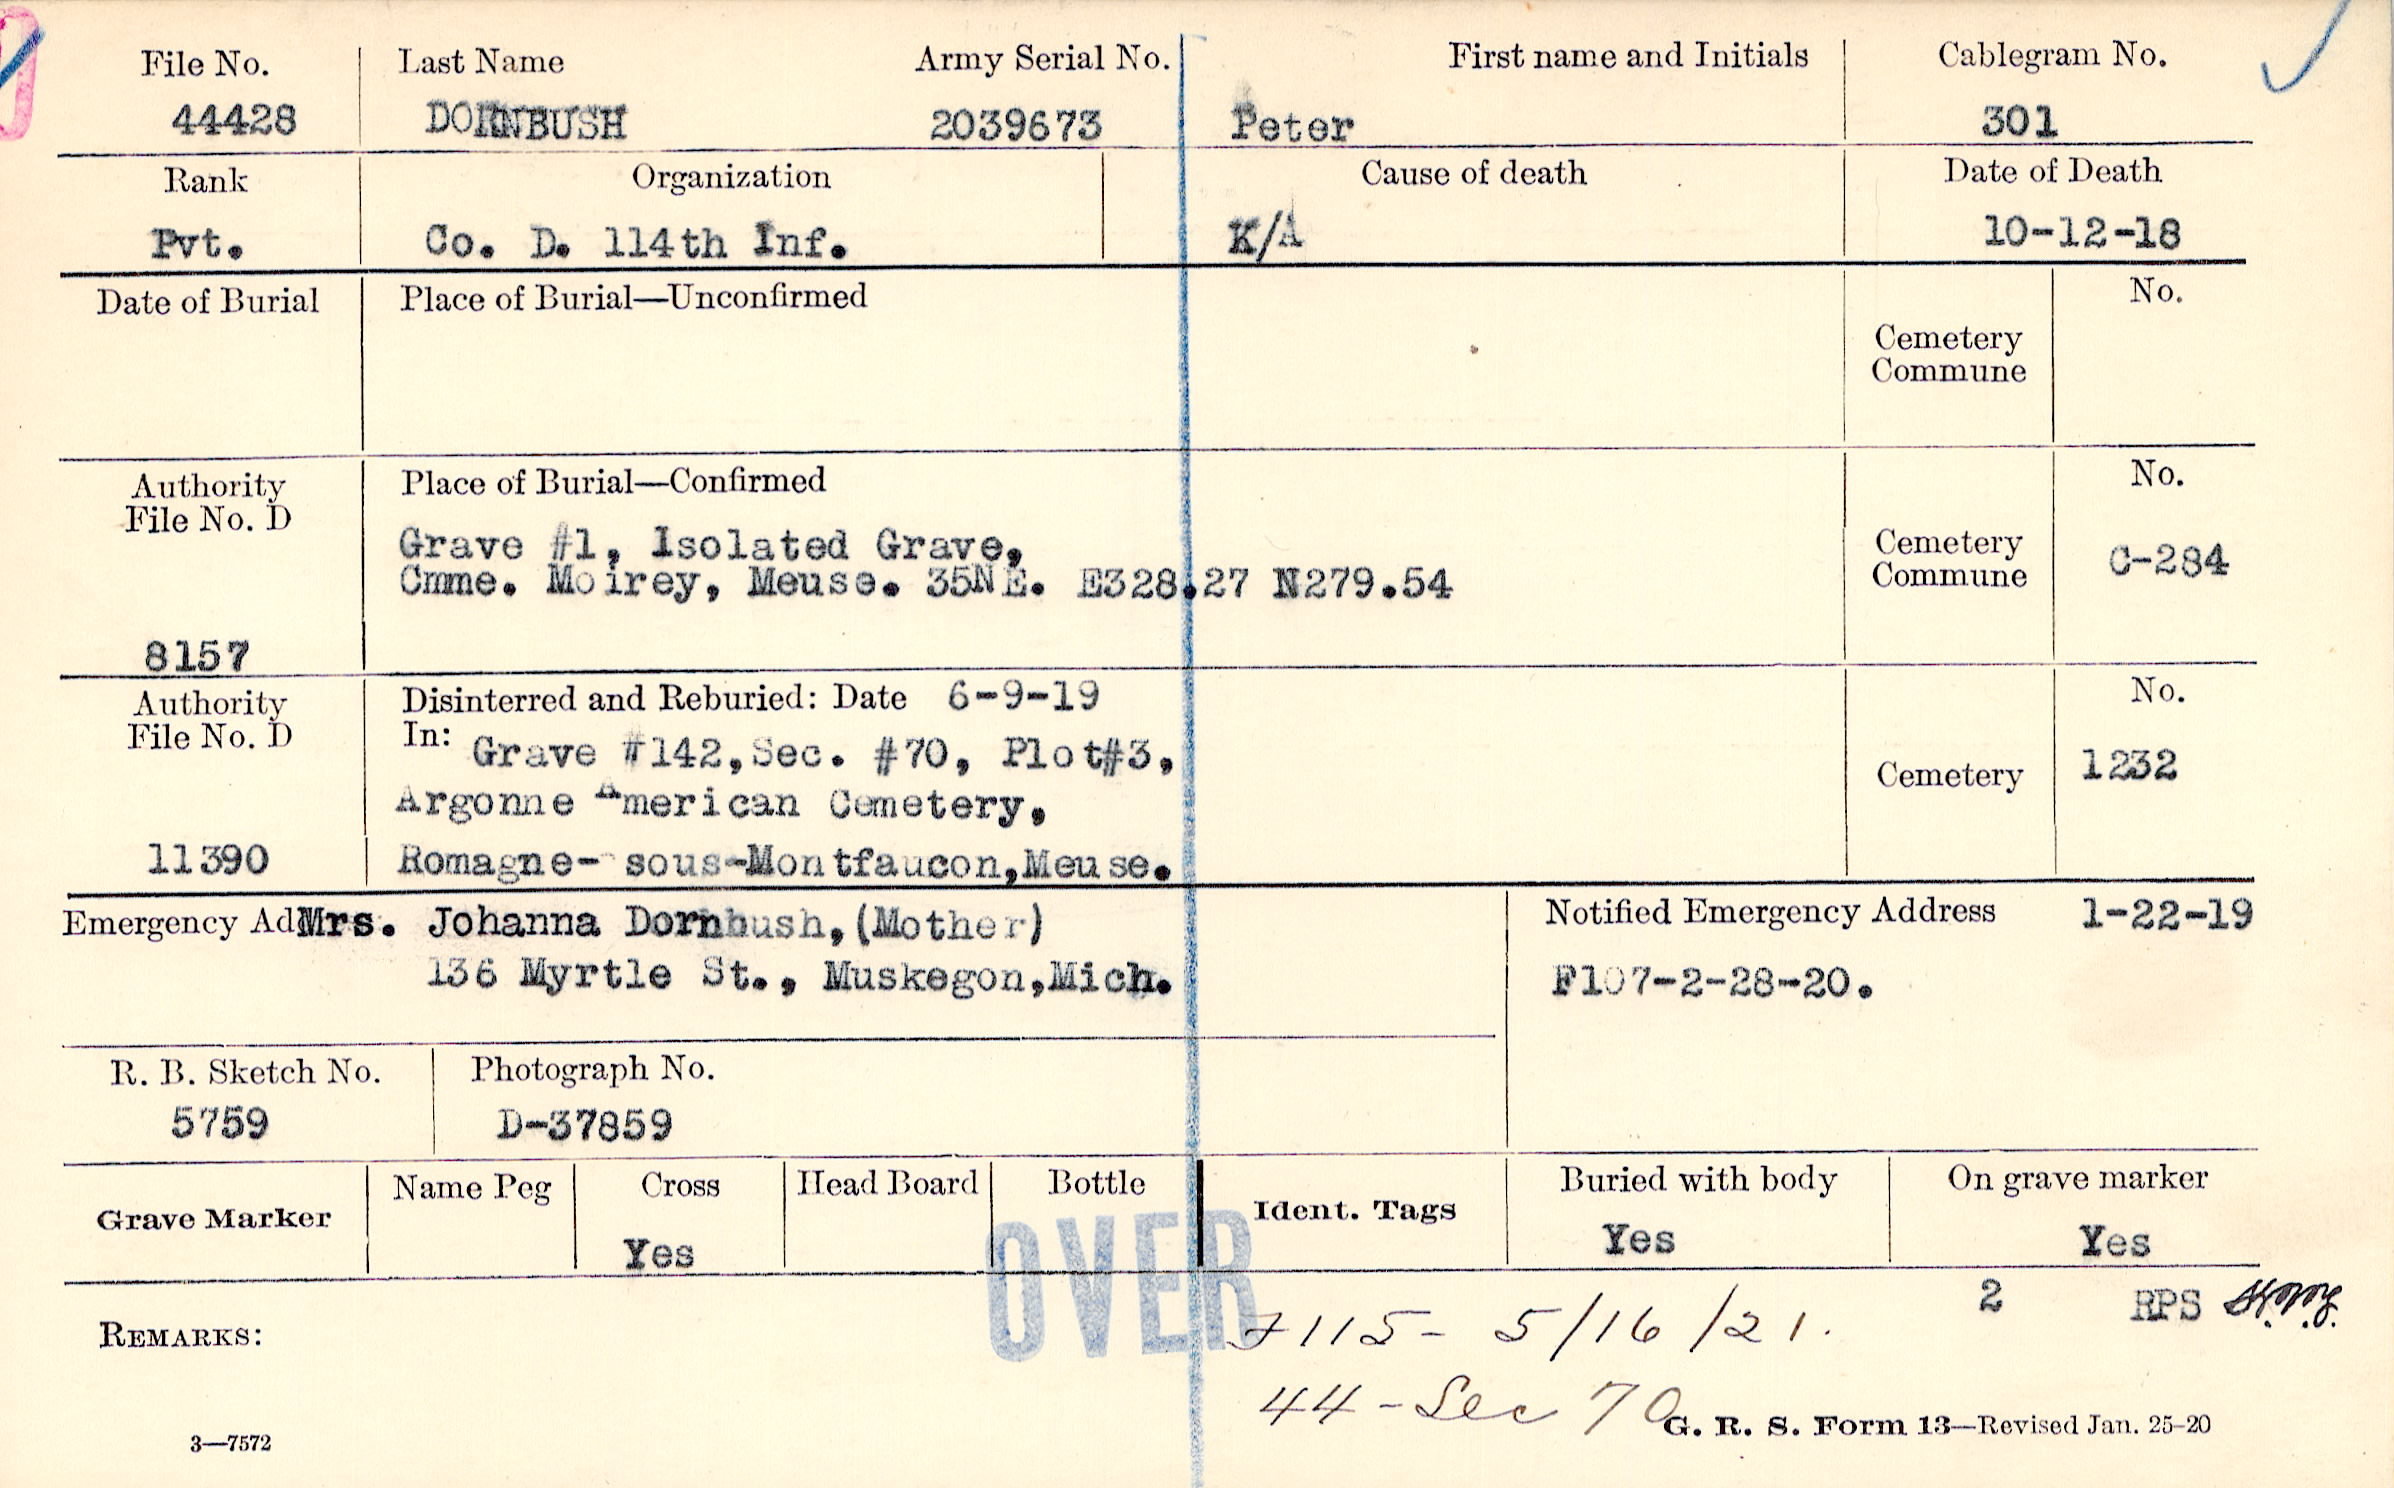 File No. Last Name Army Serial No. First name and Initials Cablegram No.
44428 DORNBUSH 2039673 Peter 301
Rank Organization Cause of death Date of Death
Pvt. Co. D. 114th Inf. K/A 10-12-18
Date of Burial Place of Burial—Unconfirmed No.
Cemetery
Commune
Authority Place of Burial—Confirmed No.
File No. D
Grave #1, Isolated Grave, Cemetery
Cmme. Moirey, Meuse. 35NE. E328.27 N279.54 Commune C-284
8157
Authority Disinterred and Reburied: Date 6-9-19 No.
File No. D In: Grave #142, Sec. #70, Plot#3, Cemetery 1232
Argonne American Cemetery,
11390 Romagne- sous-Montfaucon, Meuse.
Emergency Ad Mrs. Johanna Dornbush, (Mother) Notified Emergency Address 1-22-19
136 Myrtle St., Muskegon, Mich. F107-2-28-20.
R. B. Sketch No. Photograph No.
5759 D-37859
Grave Marker Name Peg Cross Head Board Bottle Ident. Tags Buried with body On grave marker
Yes Yes Yes
OVER
2 RPS
REMARKS: 7115- 5/16/21.
44-Sec 70
3—7572 G. R. S. Form 13—Revised Jan. 25-20